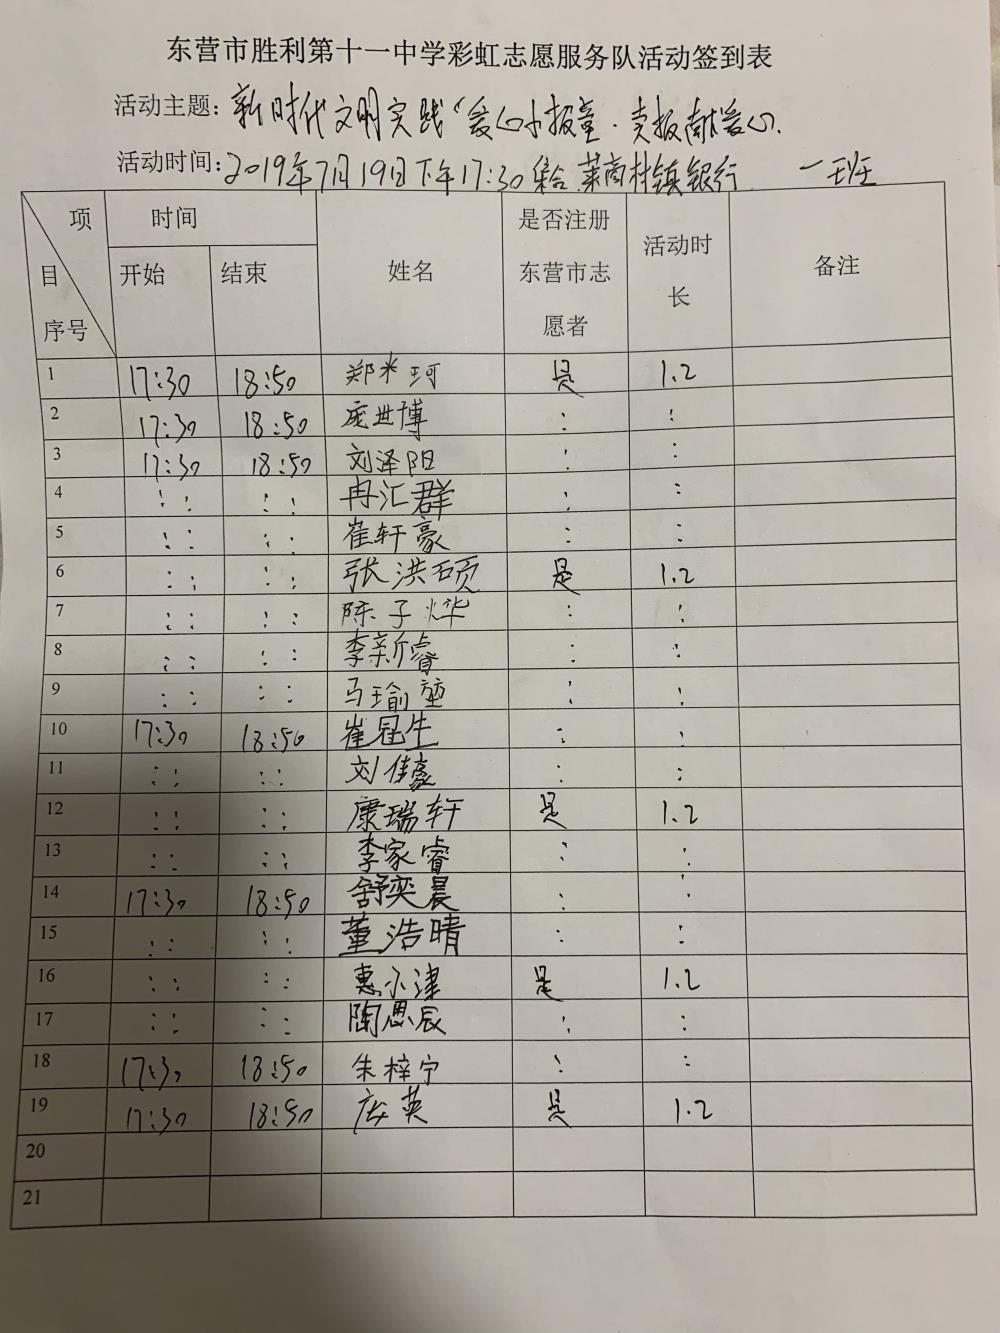 东营市胜利第十一中学彩虹志愿服务队活动签到表
活动主题: 新时代文明实践“爱心小报童·卖报献爱心.
活动时间: 2019年7月19日下午17:30集合.莱商村镇银行. 一班
项目 序号 时间 开始 结束 姓名 是否注册东营市志愿者 活动时长 备注
1 17:30 18:50 郑米珂 是 1.2
2 17:30 18:50 庞世博 : :
3 17:30 18:50 刘泽阳 : :
4 : : : : 冉汇群 : :
5 : : : : 崔轩豪 : :
6 : : : : 张洪硕 是 1.2
7 : : : : 陈子烨 : :
8 : : : : 李新睿 : :
9 : : : : 马瑜堃 : :
10 17:30 18:50 崔冠生 : :
11 : : : : 刘佳豪 : :
12 : : : : 康瑞轩 是 1.2
13 : : : : 李家睿 : :
14 17:30 18:50 舒奕晨 : :
15 : : : : 董浩晴 : :
16 : : : : 惠小津 是 1.2
17 : : : : 陶思辰 : :
18 17:30 18:50 朱梓宁 : :
19 17:30 18:50 英 是 1.2
20
21